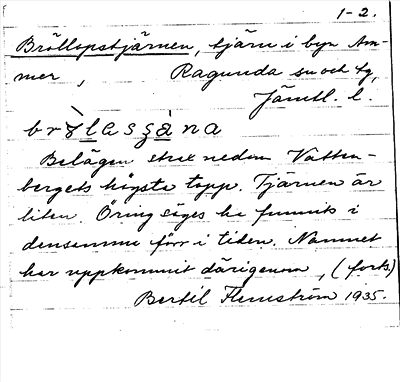 1-2.
Bröllopstjärnen, tjärn i byn Am-
mer, Ragunda sn och tg,
Jämtl. l.
Belägen strax nedom Vatten-
bergets högsta topp. Tjärnen är
liten. Öring säges ha funnits i
densamma förr i tiden. Namnet
har uppkommit därigenom, (forts.)
Bertil Flemström 1935.